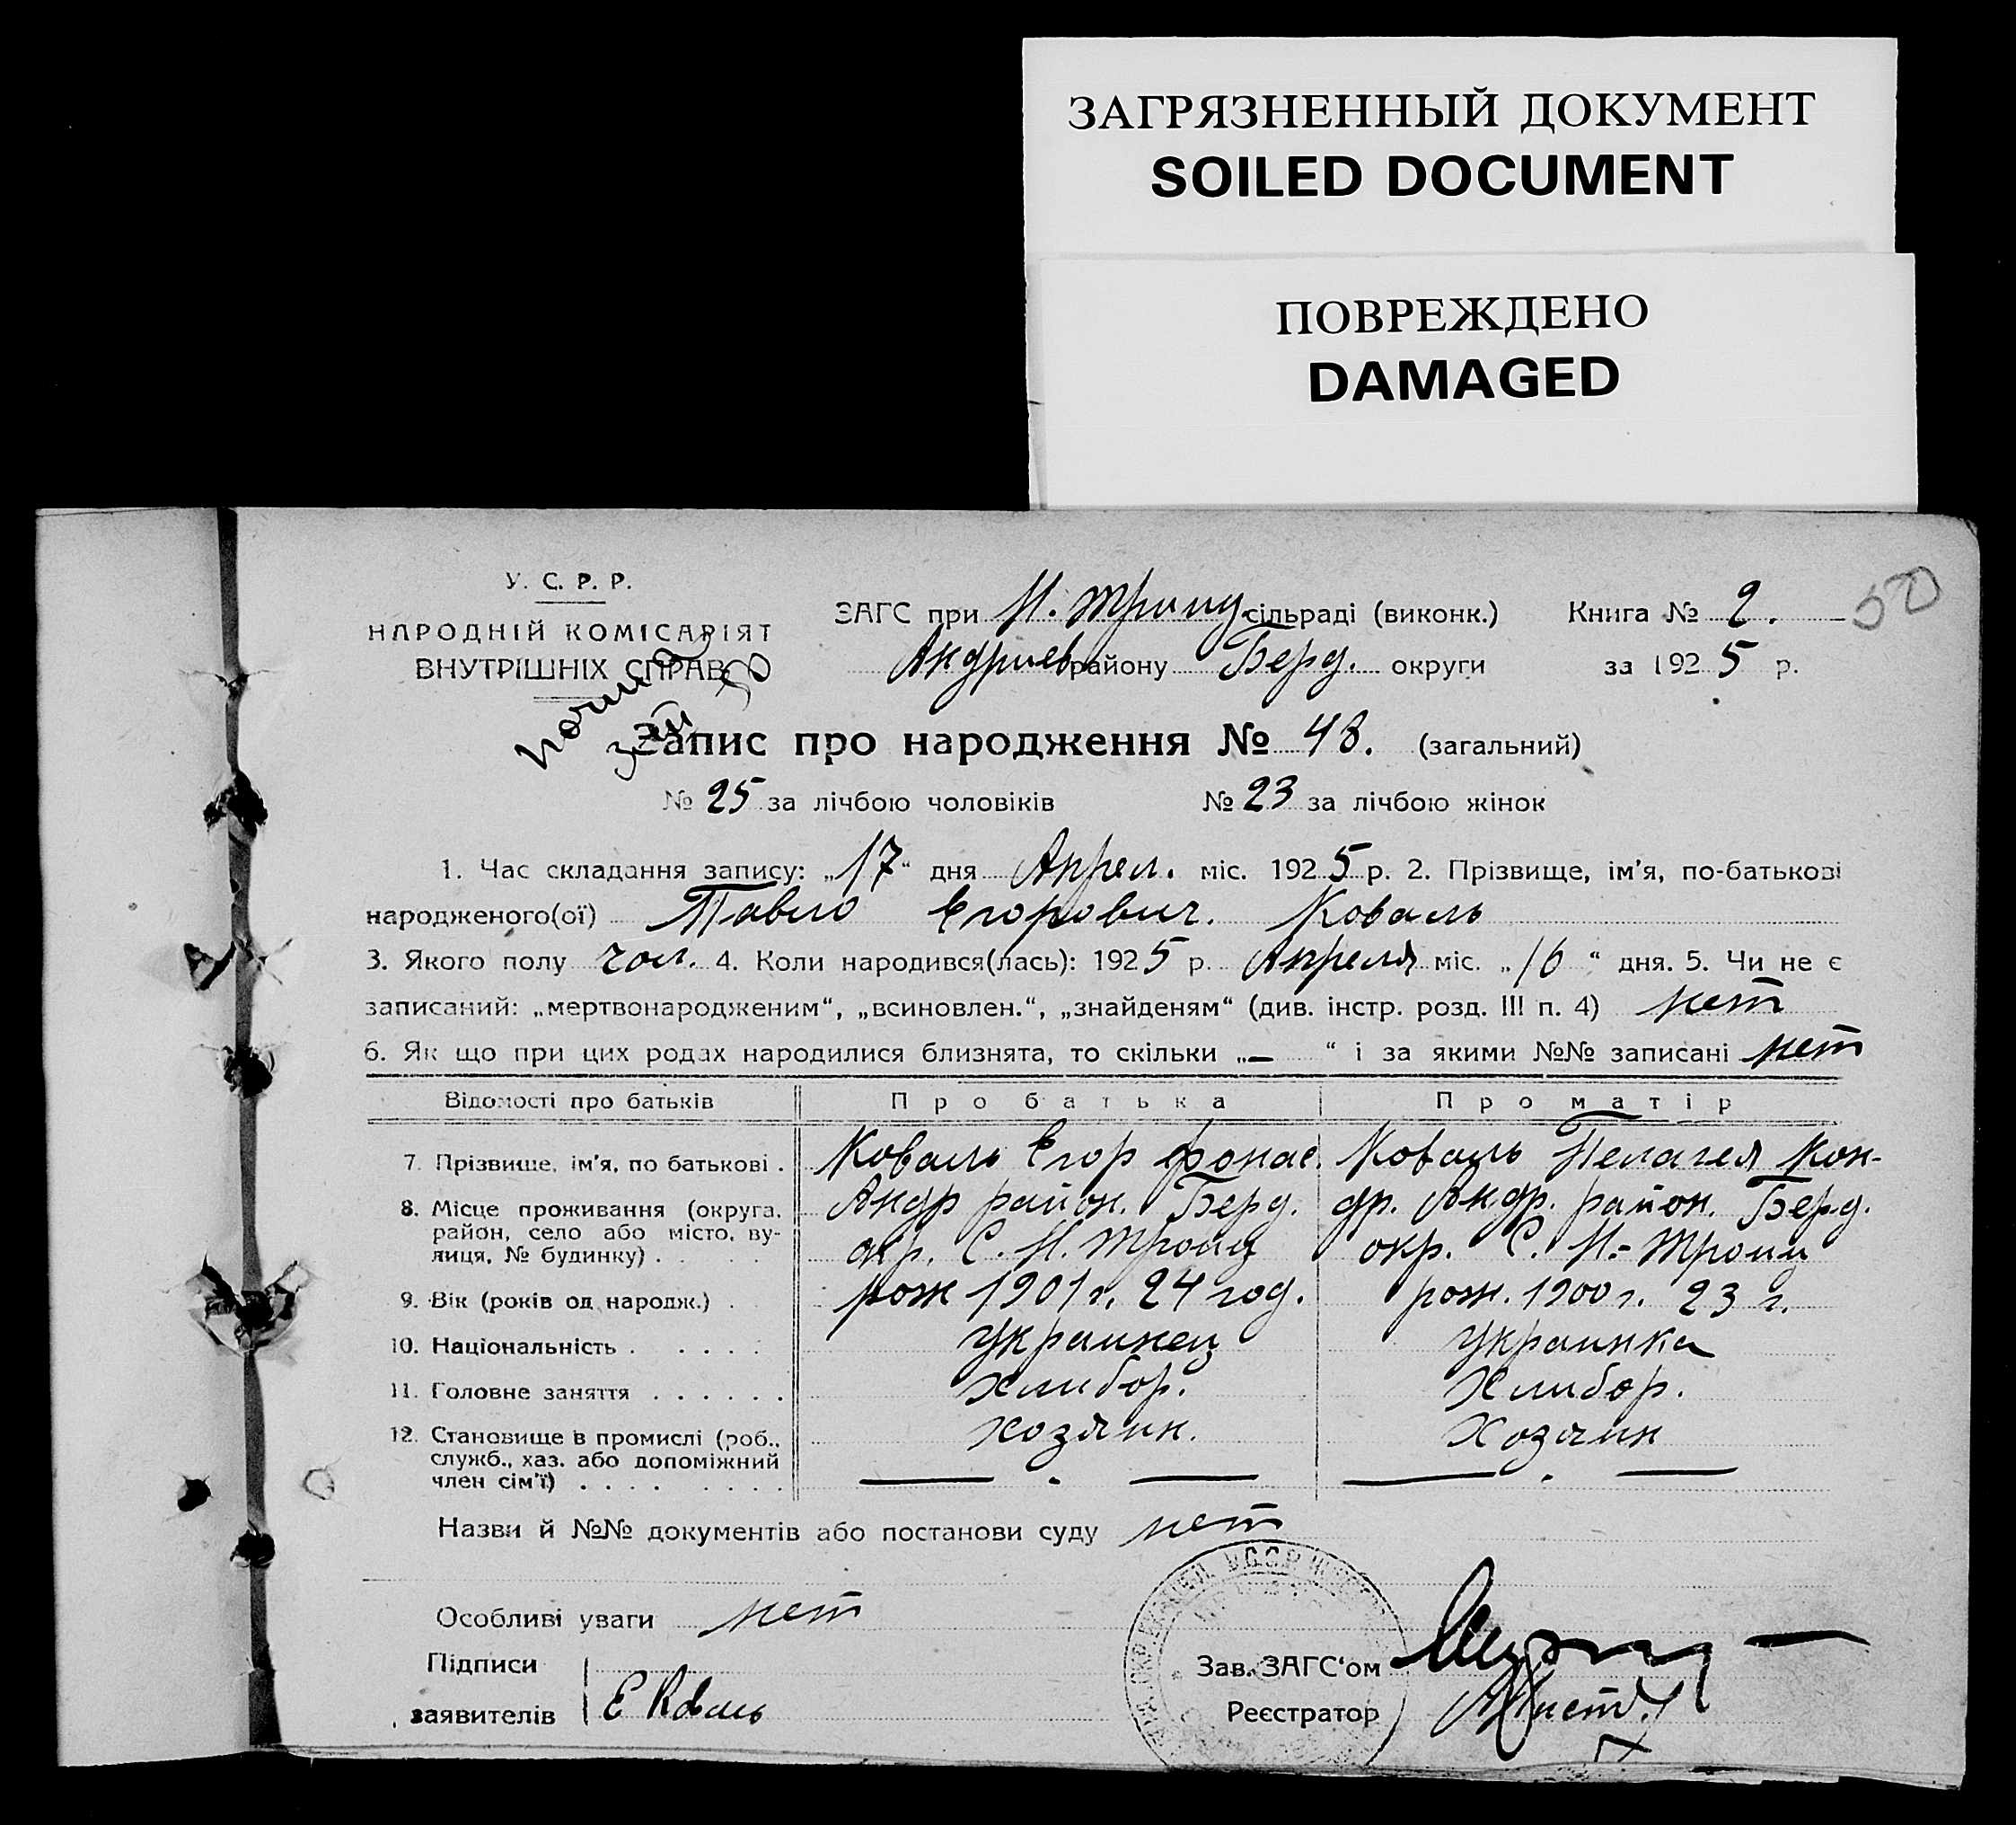 ЗАГРЯЗНЕННЫЙ ДОКУМЕНТ
SOILED DOCUMENT
ПОВРЕЖДЕНО
DAMAGED
50
У. С. Р. Р.
НАРОДНІЙ КОМІСАРІЯТ
ВНУТРІШНІХ СПРАВ
ЗАГС при Н. Троицк. сільраді (виконк.) Книга № 2.
Андриев району Берд. округи за 1925 р.
Запис про народження № 48. (загальний)
№ 25 за лічбою чоловіків № 23 за лічбою жінок
1. Час складання запису: „17“ дня Апрел. міс. 1925 р. 2. Прізвище, ім'я, по-батькові
народженого(ої) Павло Егорович. Коваль
3. Якого полу чол. 4. Коли народився(лась): 1925 р. Апреля міс. „16“ дня. 5. Чи не є
записаний: „мертвонародженим“, „всиновлен.“, „знайденям“ (див. інстр. розд. III п. 4) нет
6. Як що при цих родах народилися близнята, то скільки „—“ і за якими №№ записані нет
Відомості про батьків Про батька Про матір
7. Прізвище, ім'я, по батькові . Коваль Егор Фонас. Коваль Пелагея Кон-
8. Місце проживання (округа, Андр район. Берд. др. Андр. район. Берд.
район, село або місто, ву-
лиця, № будинку) . . . . окр. С. Н. Троицк окр. С. Н.-Троиц
9. Вік (років од народж.) . рож 1901 г. 24 год. рож. 1900 г. 23 г.
10. Національність . . . . . Украинец Украинка
11. Головне заняття . . . . . . Хлибор. Хлибор.
12. Становище в промислі (роб., хозяин. Хозяин
служб., хаз. або допоміжний
член сім'ї) . . . . . . . . — . — — . —
Назви й №№ документів або постанови суду нет
Особливі уваги нет
Підписи
заявителів Е Коваль
Зав. ЗАГС'ом
Реєстратор